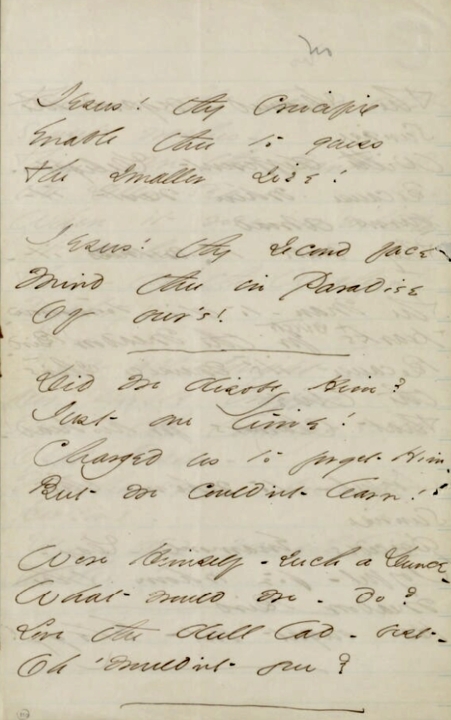 Jesus! thy Crucifix
Enable thee to guess
The smaller size!
Jesus! thy second face
Mind thee in Paradise
Of our's!
Did we disobey Him?
Just one time!
Charged us to forget Him -
But we couldn't learn!
Were Himself - such a Dunce -
What would we - do?
Love the dull lad - best -
Oh, wouldn't you?